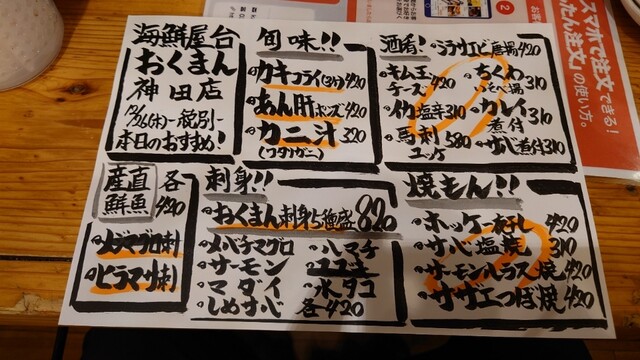 海鮮屋台
おくまん
神田店
12/26(木)〜税別〜
本日のおすすめ!
旬味!!
・カキフライ(3ケ)420
・あん肝ポン酢420
・カニ汁320
(ワタリガニ)
酒肴!
・シラサエビ唐揚420
・キム玉チーズ420
・イカ塩辛310
・馬刺ユッケ580
・ちくわいそべ揚310
・カレイ煮付310
・サバ煮付310
産直鮮魚
各420
・メジマグロ刺
・ヒラマサ刺
刺身!!
・おくまん刺身5種盛820
・メバチマグロ
・サーモン
・マダイ
・しめさば
・ハマチ
・水タコ
各420
焼もん!!
・ホッケ一夜干し420
・サバ塩焼310
・サーモンハラス焼420
・サザエつぼ焼420
スマホで注文できる!
かんたん注文」の使い方。
2